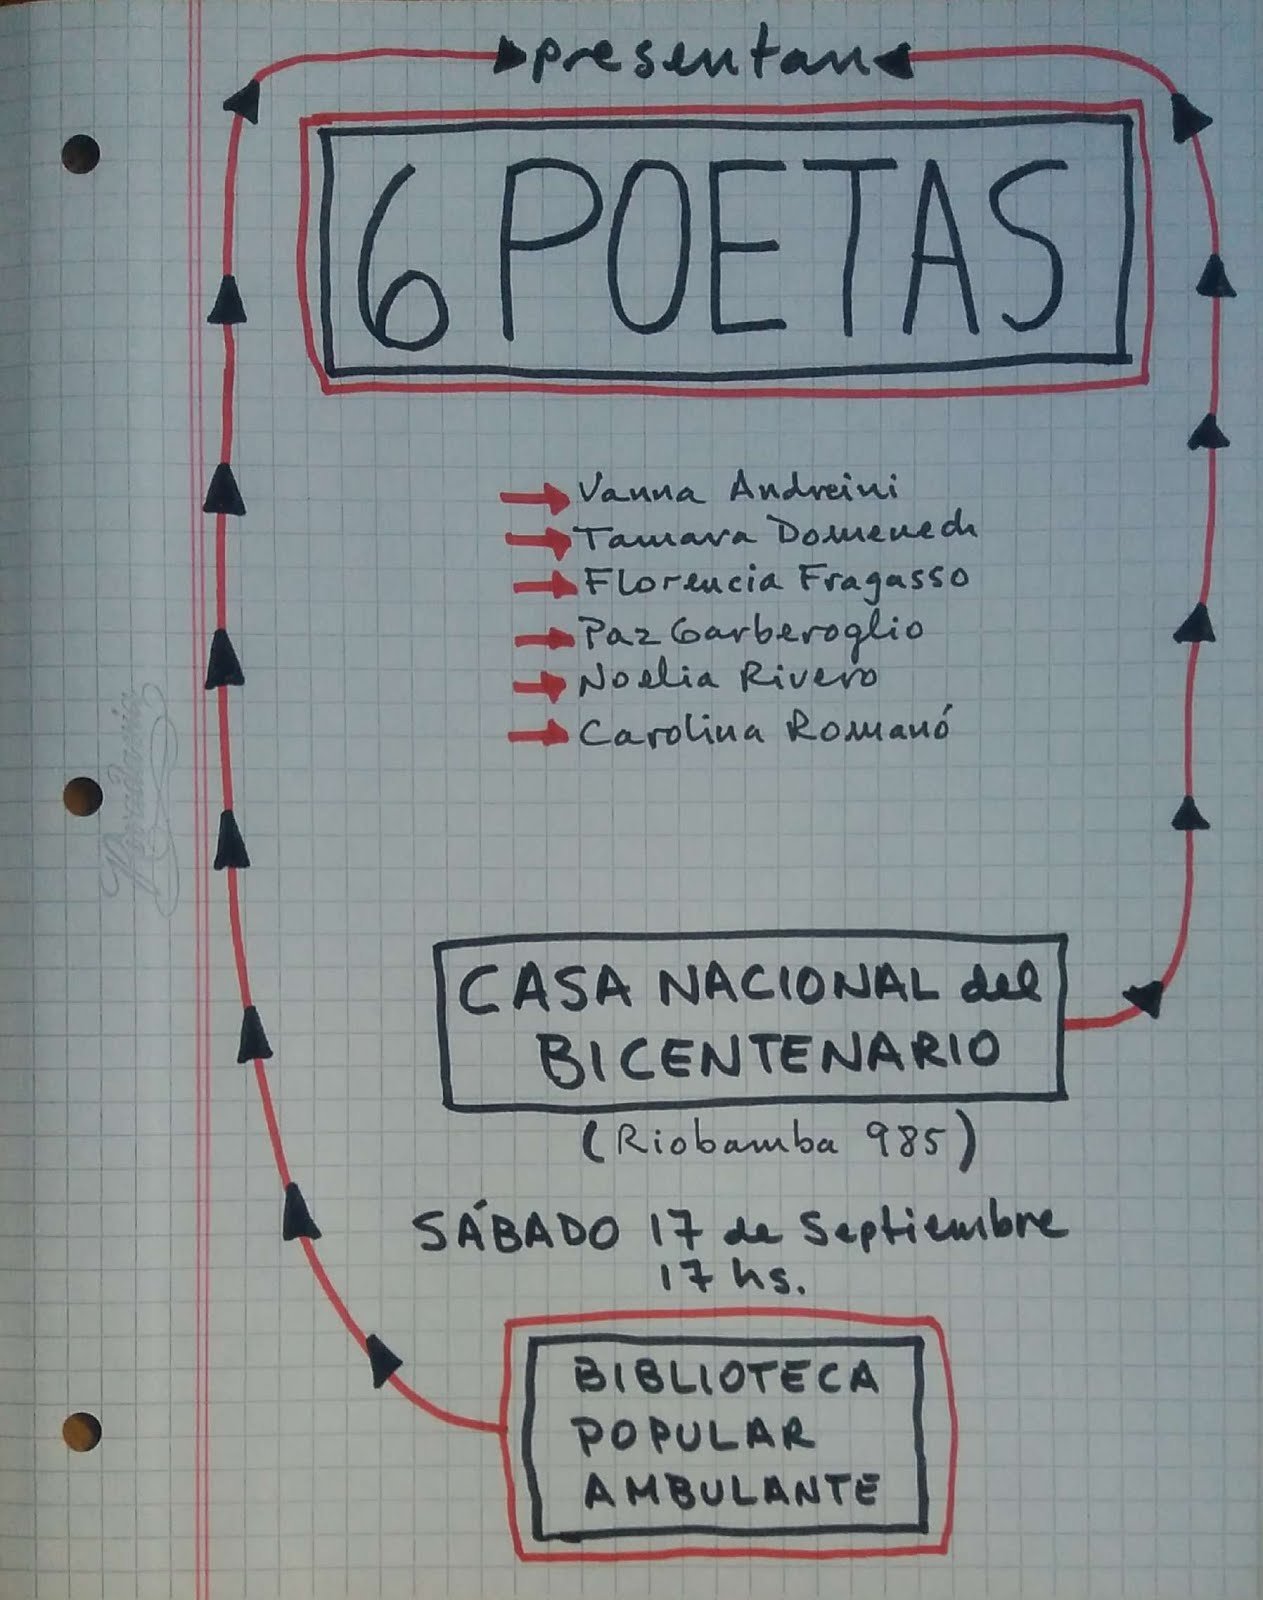 presentan
6 POETAS
Vanna Andreini
Tamara Domenech
Florencia Fragasso
Paz Garberoglio
Noelia Rivero
Carolina Romanó
Rivadavia
CASA NACIONAL del
BICENTENARIO
(Riobamba 985)
SÁBADO 17 de Septiembre
17 hs.
BIBLIOTECA
POPULAR
AMBULANTE